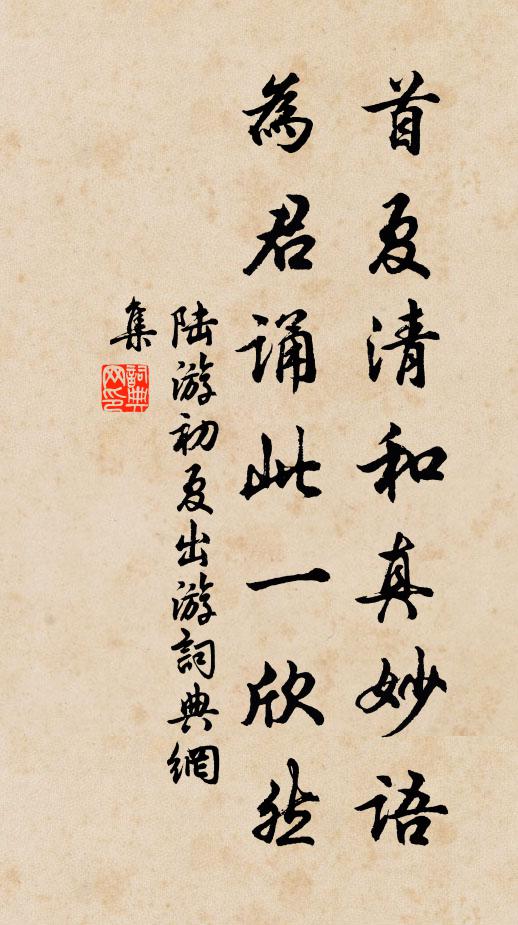 首夏清和真妙语
為君诵此一欣然
陆游初夏出游詞典網
集
詞典
网印